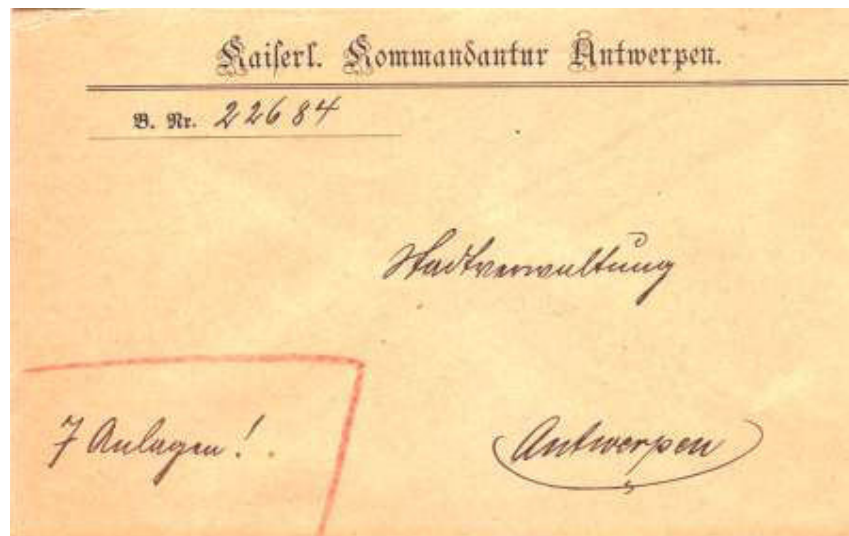 Kaiserl. Kommandantur Antwerpen.
B. Nr. 22684
Stadtverwaltung
7 Anlagen!
Antwerpen